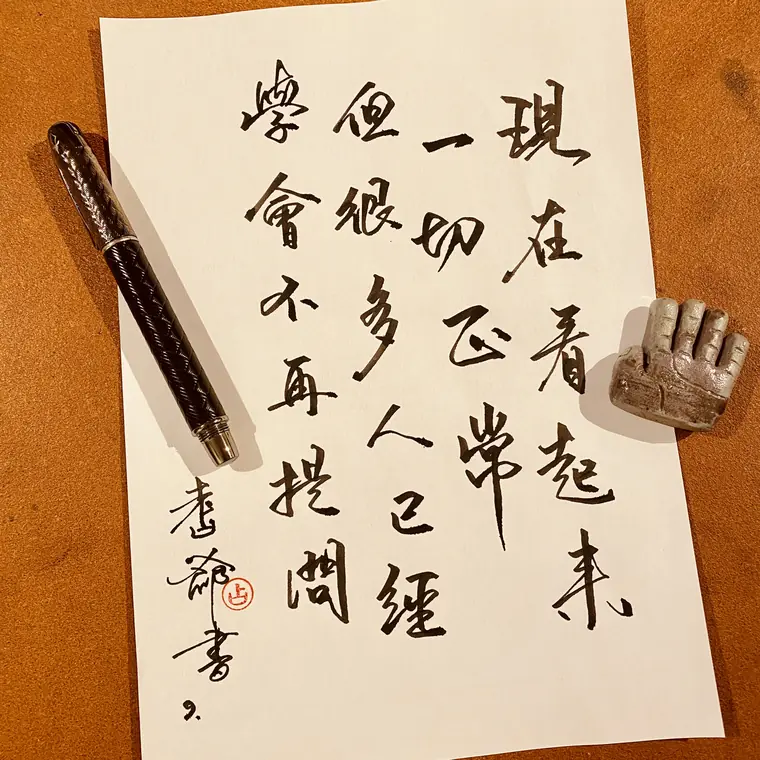 現在看起来
一切正常
但很多人已經
學會不再提問
書
9.